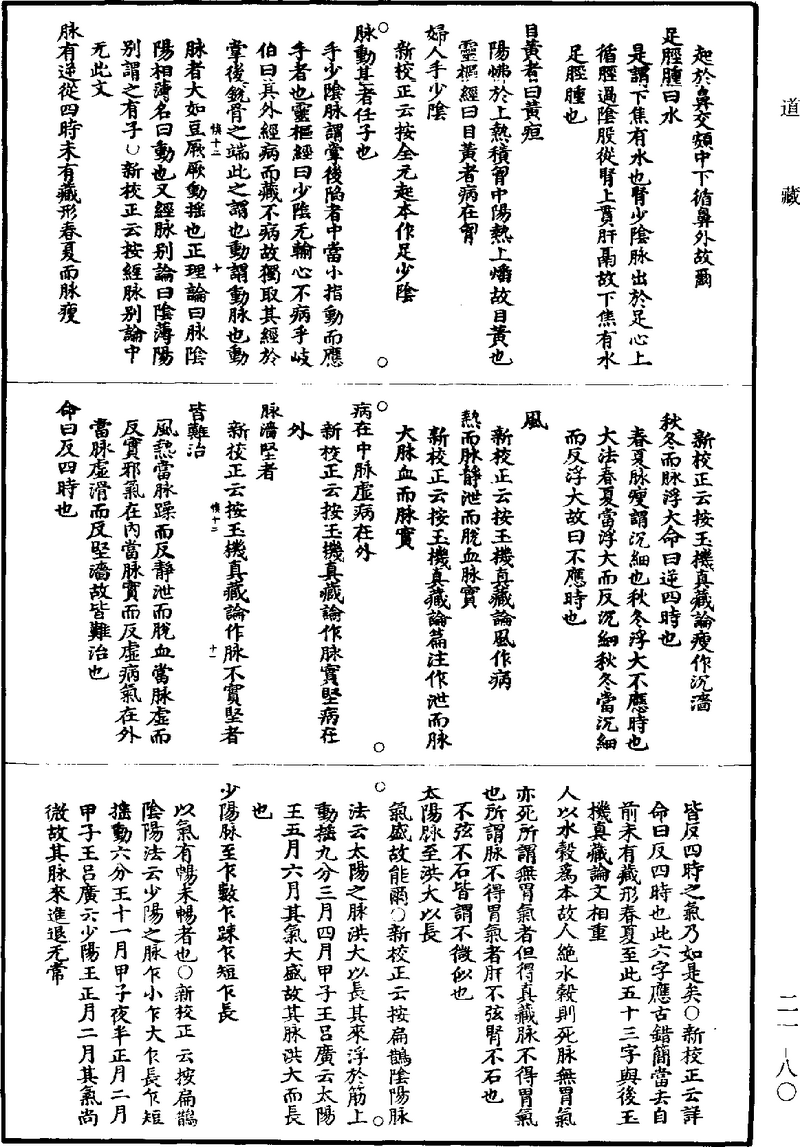 道藏
二一—八〇
起於鼻交頞中下循鼻外故爾
足脛腫曰水
是謂下焦有水也腎少陰脉出於足心上
循脛過陰股從腎上貫肝鬲故下焦有水
足脛腫也
目黃者曰黃疸
陽怫於上熱積胷中陽熱上燔故目黃也
靈樞經曰目黃者病在胷
婦人手少陰
新校正云按全元起本作足少陰
脉動甚者任子也
手少陰脉謂掌後陷者中當小指動而應
手者也靈樞經曰少陰无輸心不病乎岐
伯曰其外經病而藏不病故獨取其經於
掌後銳骨之端此之謂也動謂動脉也動
脉者大如豆厥厥動搖也正理論曰脉陰
陽相薄名曰動也又經脉别論曰陰薄陽
别謂之有子○新校正云按經脉别論中
无此文
脉有逆從四時未有藏形春夏而脉瘦
新校正云按玉機真藏論瘦作沉濇
秋冬而脉浮大命曰逆四時也
春夏脉瘦謂沉細也秋冬浮大不應時也
大法春夏當浮大而反沉細秋冬當沉細
而反浮大故曰不應時也
風
新校正云按玉機真藏論風作病
熱而脉靜泄而脫血脉實
新校正云按玉機真藏論篇注作泄而脉
大脉血而脉實
病在中脉虛病在外
新校正云按玉機真藏論作脉實堅病在
外
脉濇堅者
新校正云按玉機真藏論作脉不實堅者
皆難治
風熱當脉躁而反靜泄而脫血當脉虛而
反實邪氣在內當脉實而反虛病氣在外
當脉虛滑而反堅濇故皆難治也
命曰反四時也
皆反四時之氣乃如是矣○新校正云詳
命曰反四時也此六字應古錯簡當去自
前未有藏形春夏至此五十三字與後玉
機真藏論文相重
人以水穀爲本故人絶水穀則死脉無胃氣
亦死所謂無胃氣者但得真藏脉不得胃氣
也所謂脉不得胃氣者肝不弦腎不石也
不弦不石皆謂不微似也
太陽脉至洪大以長
氣盛故能爾○新校正云按扁鵲陰陽脉
法云太陽之脉洪大以長其來浮於筋上
動搖九分三月四月甲子王呂廣云太陽
王五月六月其氣大盛故其脉洪大而長
也
少陽脉至乍數乍踈乍短乍長
以氣有暢未暢者也○新校正云按扁鵲
陰陽法云少陽之脉乍小乍大乍長乍短
搖動六分王十一月甲子夜半正月二月
甲子王呂廣云少陽王正月二月其氣尚
微故其脉來進退无常